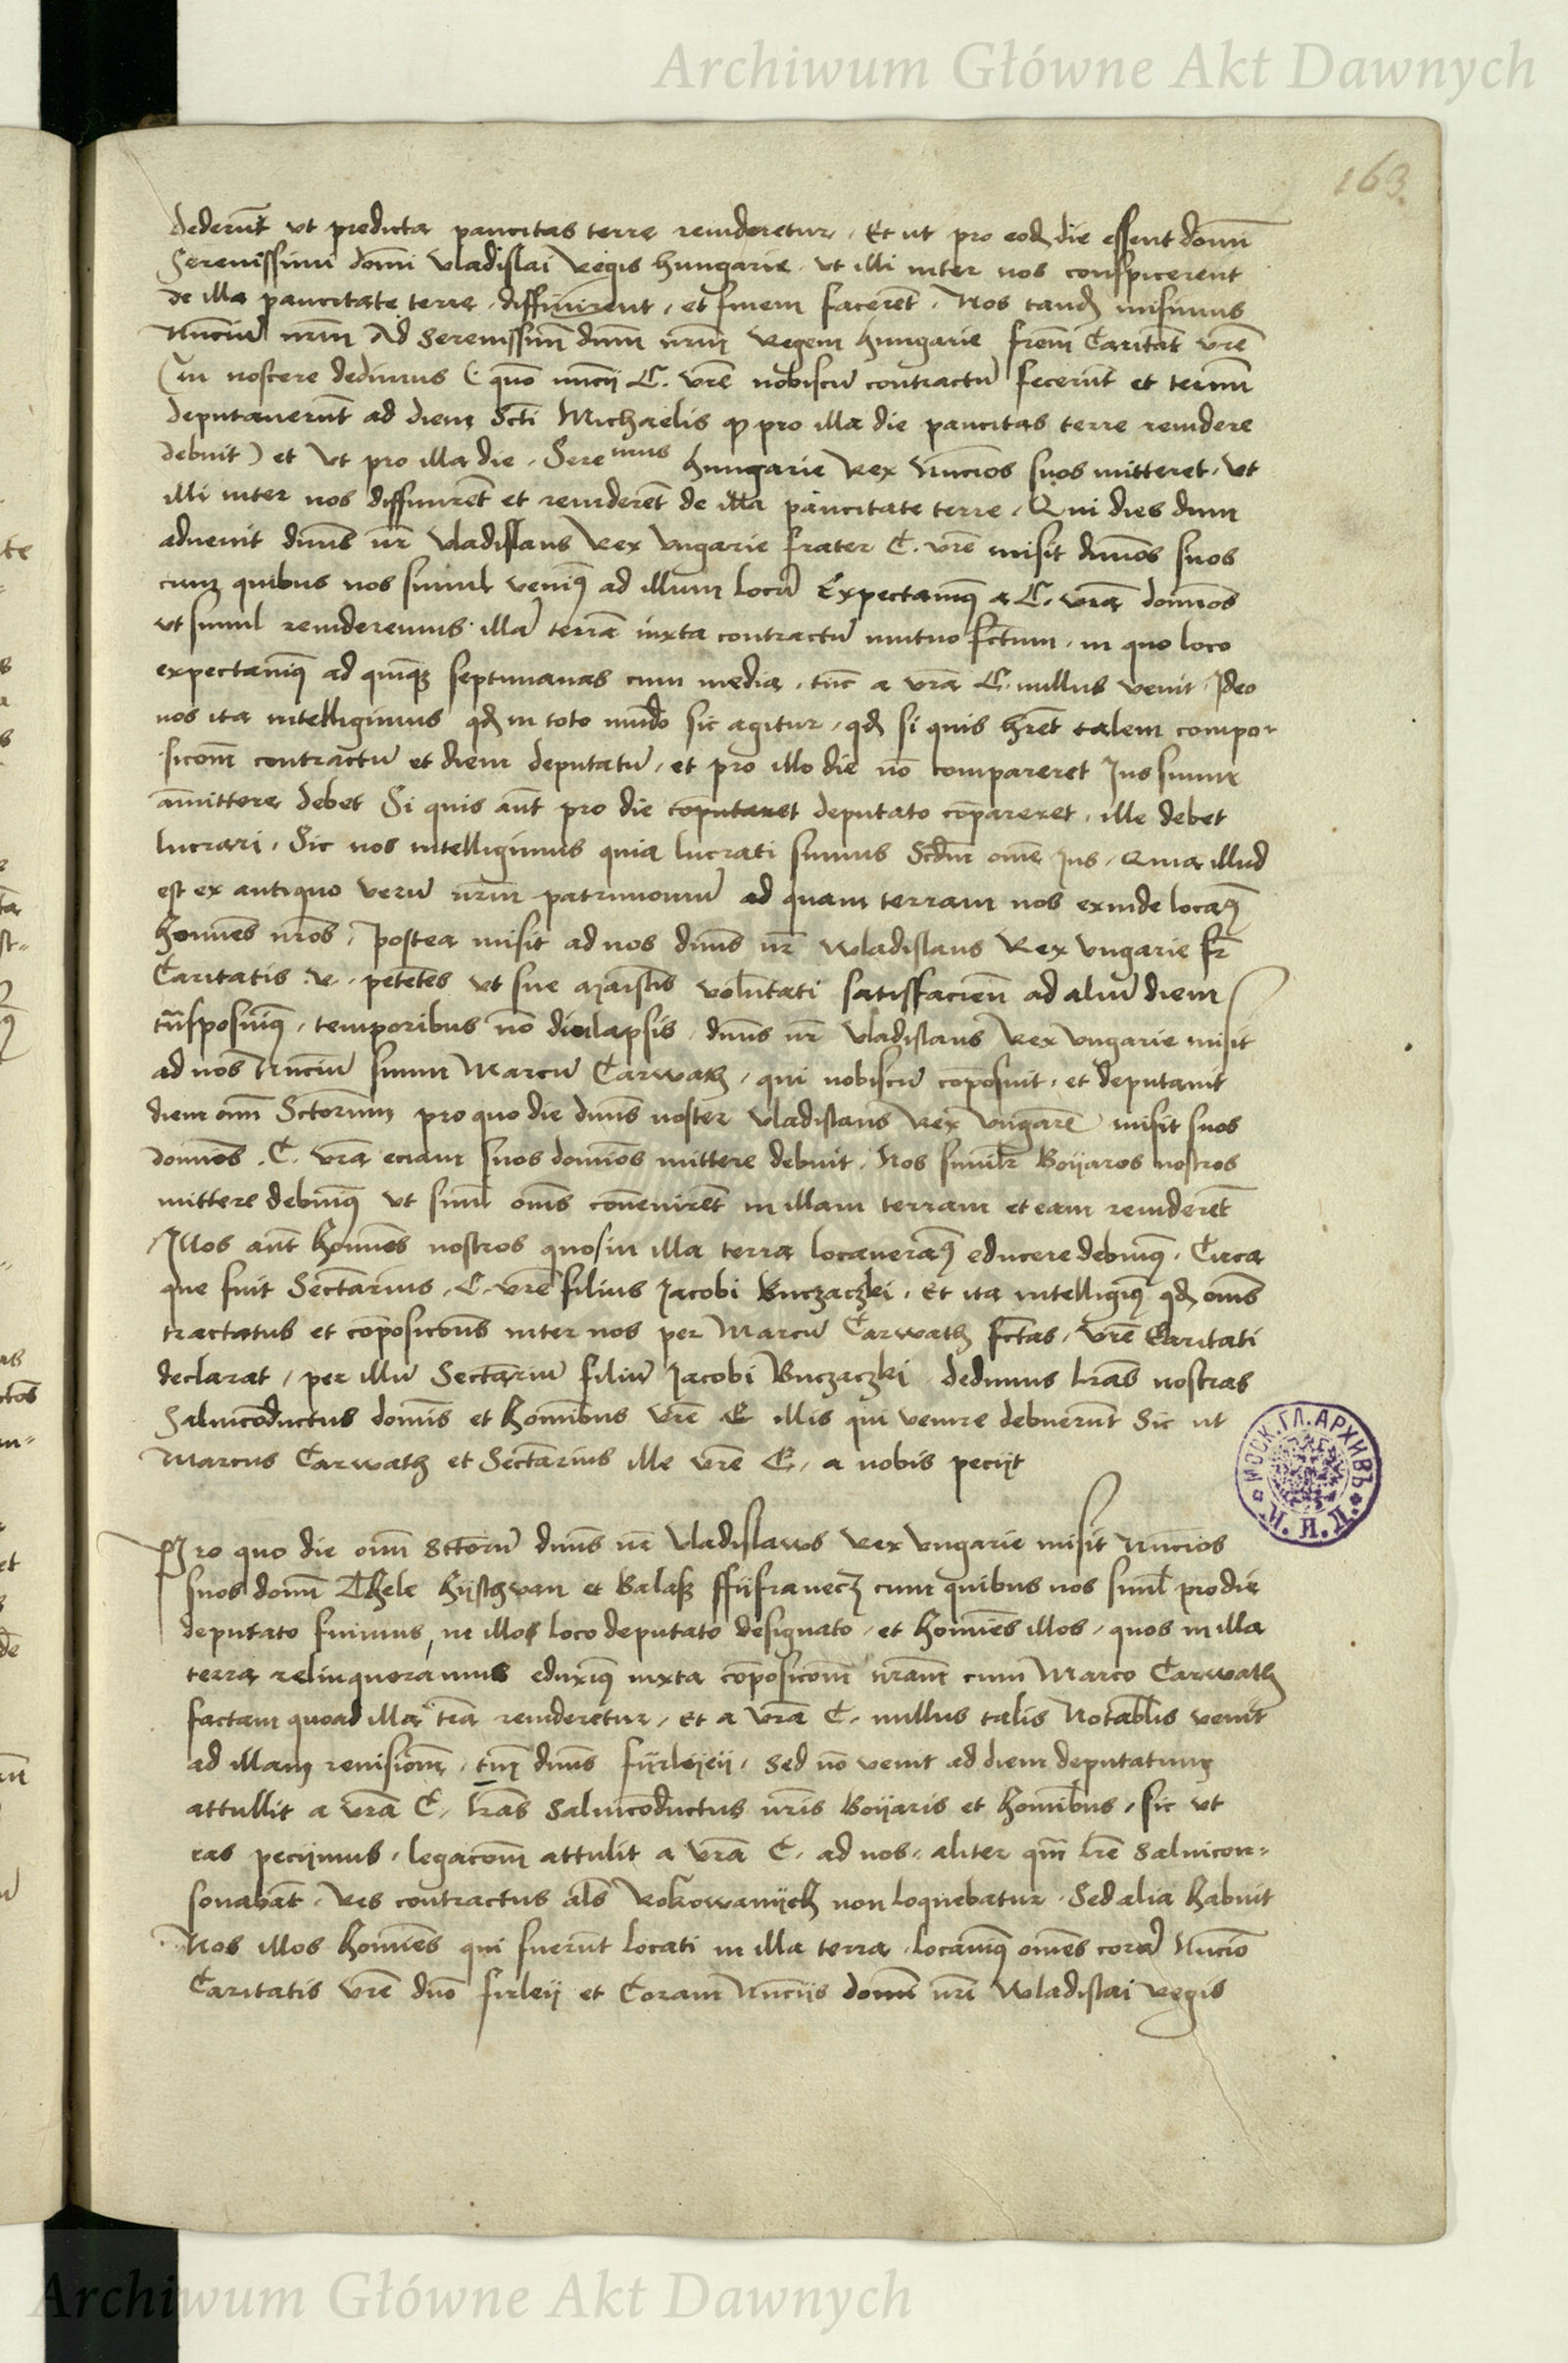 Archiwum Główne Akt Dawnych
163
dederunt vt predicta paucitas terre reuideretur, Et ut pro eod die essent domi
Serenissimi domi Vladislai Regis hungarie. vt illi inter nos conspicerent
de illa paucitate terre, diffinirent, et finem facerēt. Nos tand misimus
Nunciū nrm Ad Serenissim dnm nrm Regem hungarie frem Caritat vre
(in noscere dedimus (quo nuncij C. vre nobiscū contractū fecerūt et termi
deputauerūt ad diem Scti Michaelis q pro illa die paucitas terre reuidere
debuit) et Vt pro illa die. Serenimus hungarie Rex Nuncios suos mitteret. Vt
illi inter nos diffinirēt et reuiderēt de illa paucitate terre. Qui dies dum
aduenit dnus nr Vladislaus Rex Vngarie frater C. vre misit dnos suos
cum quibus nos simul venimq ad illum locū Expectauimq a C. vra domios
vt simul reuideremus illā terrā iuxta contractū mutuo fctum. in quo loco
expectauimq ad quinq septimanas cum media, tuc a vra C. nullus venit. Ideo
nos ita intelligimus qd in toto mūdo sic agitur, qd si quis hret talem compo-
sicom contractū et diem deputatū, et pro illo die nō compareret Jus suum
amittere debet Si quis aut pro die computaret deputato cōpareret, ille debet
lucrari. Sic nos intelligimus quia lucrati sumus Scdm ome Jus, Quia illud
est ex antiquo verū nrm patrimoniū ad quam terram nos exinde locauimq
homies nros. Postea misit ad nos dnus nr Wladislaus Rex Vngarie fr
Caritatis .v. petētes vt sue Maiestis volutati satisfacien ad aliū diem
trasposuimq, temporibus nō diu lapsis. dnus nr Vladislaus Rex Vngarie misit
ad nos Nunciū suum Marcū Carwath, qui nobiscū cōposuit, et deputauit
diem om Sctorum pro quo die dnus noster Vladislaus Rex Vngarie misit suos
domios. C. vra eciam suos domios mittere debuit. Nos similr Boijaros nostros
mittere debuimq vt siml oms cōuenirēt in illam terram et eam reuiderēt
Illos aut homies nostros quos in illa terra locaueramq educere debuimq. Circa
que fuit Sectarius. C. vre filius Jacobi Buczaczki. Et ita intelligimq qd oms
tractatus et cōposicōns inter nos per Marcū Carwath fctas, vre Caritati
declarat, per illū Sectariū filiū Jacobi Buczaczki. dedimus lras nostras
Saluicōductus domis et homibus vre C illis qui venire debuerūt Sic ut
Marcus Carwath et Sectarius ille vre C. a nobis pecijt
Pro quo die om Sctorū dnus nr Vladislaws Rex Vngarie misit Nuncios
suos domi Thele hijsthwan et Balasz ffijfranecz cum quibus nos siml pro die
deputato fuimus, in illo loco deputato designato, et homies illos, quos in illa
terra relinqueramus eduximq iuxta cōposicom nram cum Marco Carwath
factam quoad illa tra reuideretur, Et a vra C. nullus talis Notablis venit
ad illam reuisionē, tm dnus firleijeij, sed nō venit ad diem deputatum
attullit a vra C. lras Saluicōductus nris Boijaris et homibus, sic vt
eas pecijmus, legacom attulit a vra C. ad nos, aliter qm lre Saluicon-
sonabāt. Res contractus als Rokowanijch non loquebatur. Sed alia habuit
Nos illos homies qui fuerūt locati in illa terra, locauimq omes corā Nūcio
Caritatis vre dno firleij et Coram Nuncijs domi nri Wladislai Regis
МОСК. ГЛ. АРХИВЪ
М. И. Д.
Archiwum Główne Akt Dawnych